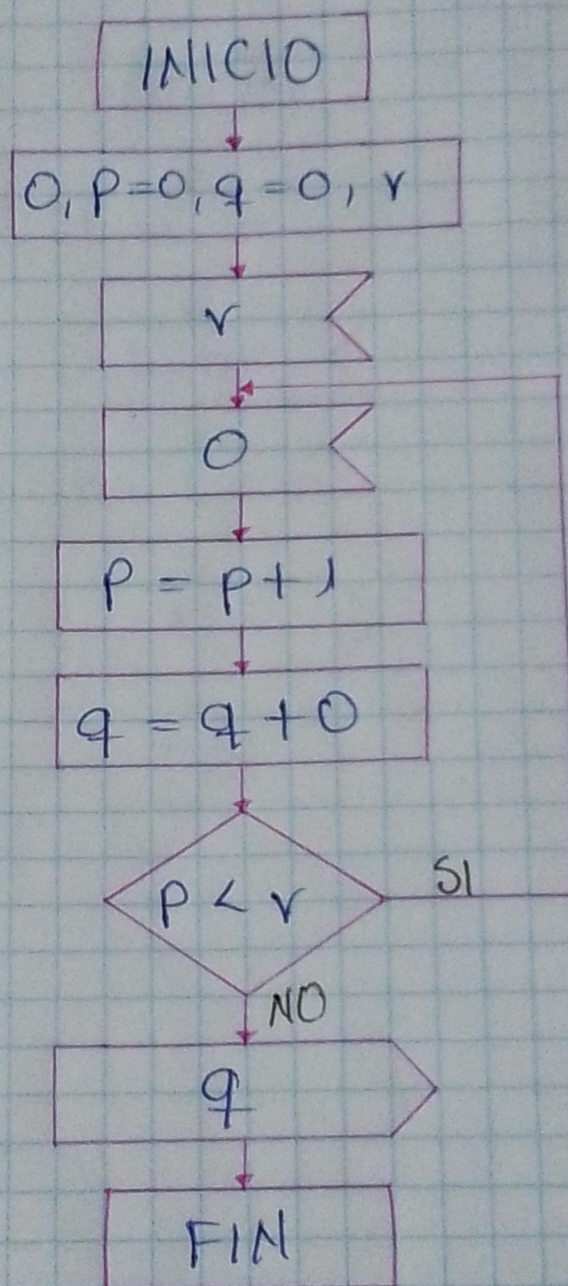 INICIO
O, p=0, q=0, r
r
O
p = p+1
q = q+O
p < r
SI
NO
q
FIN